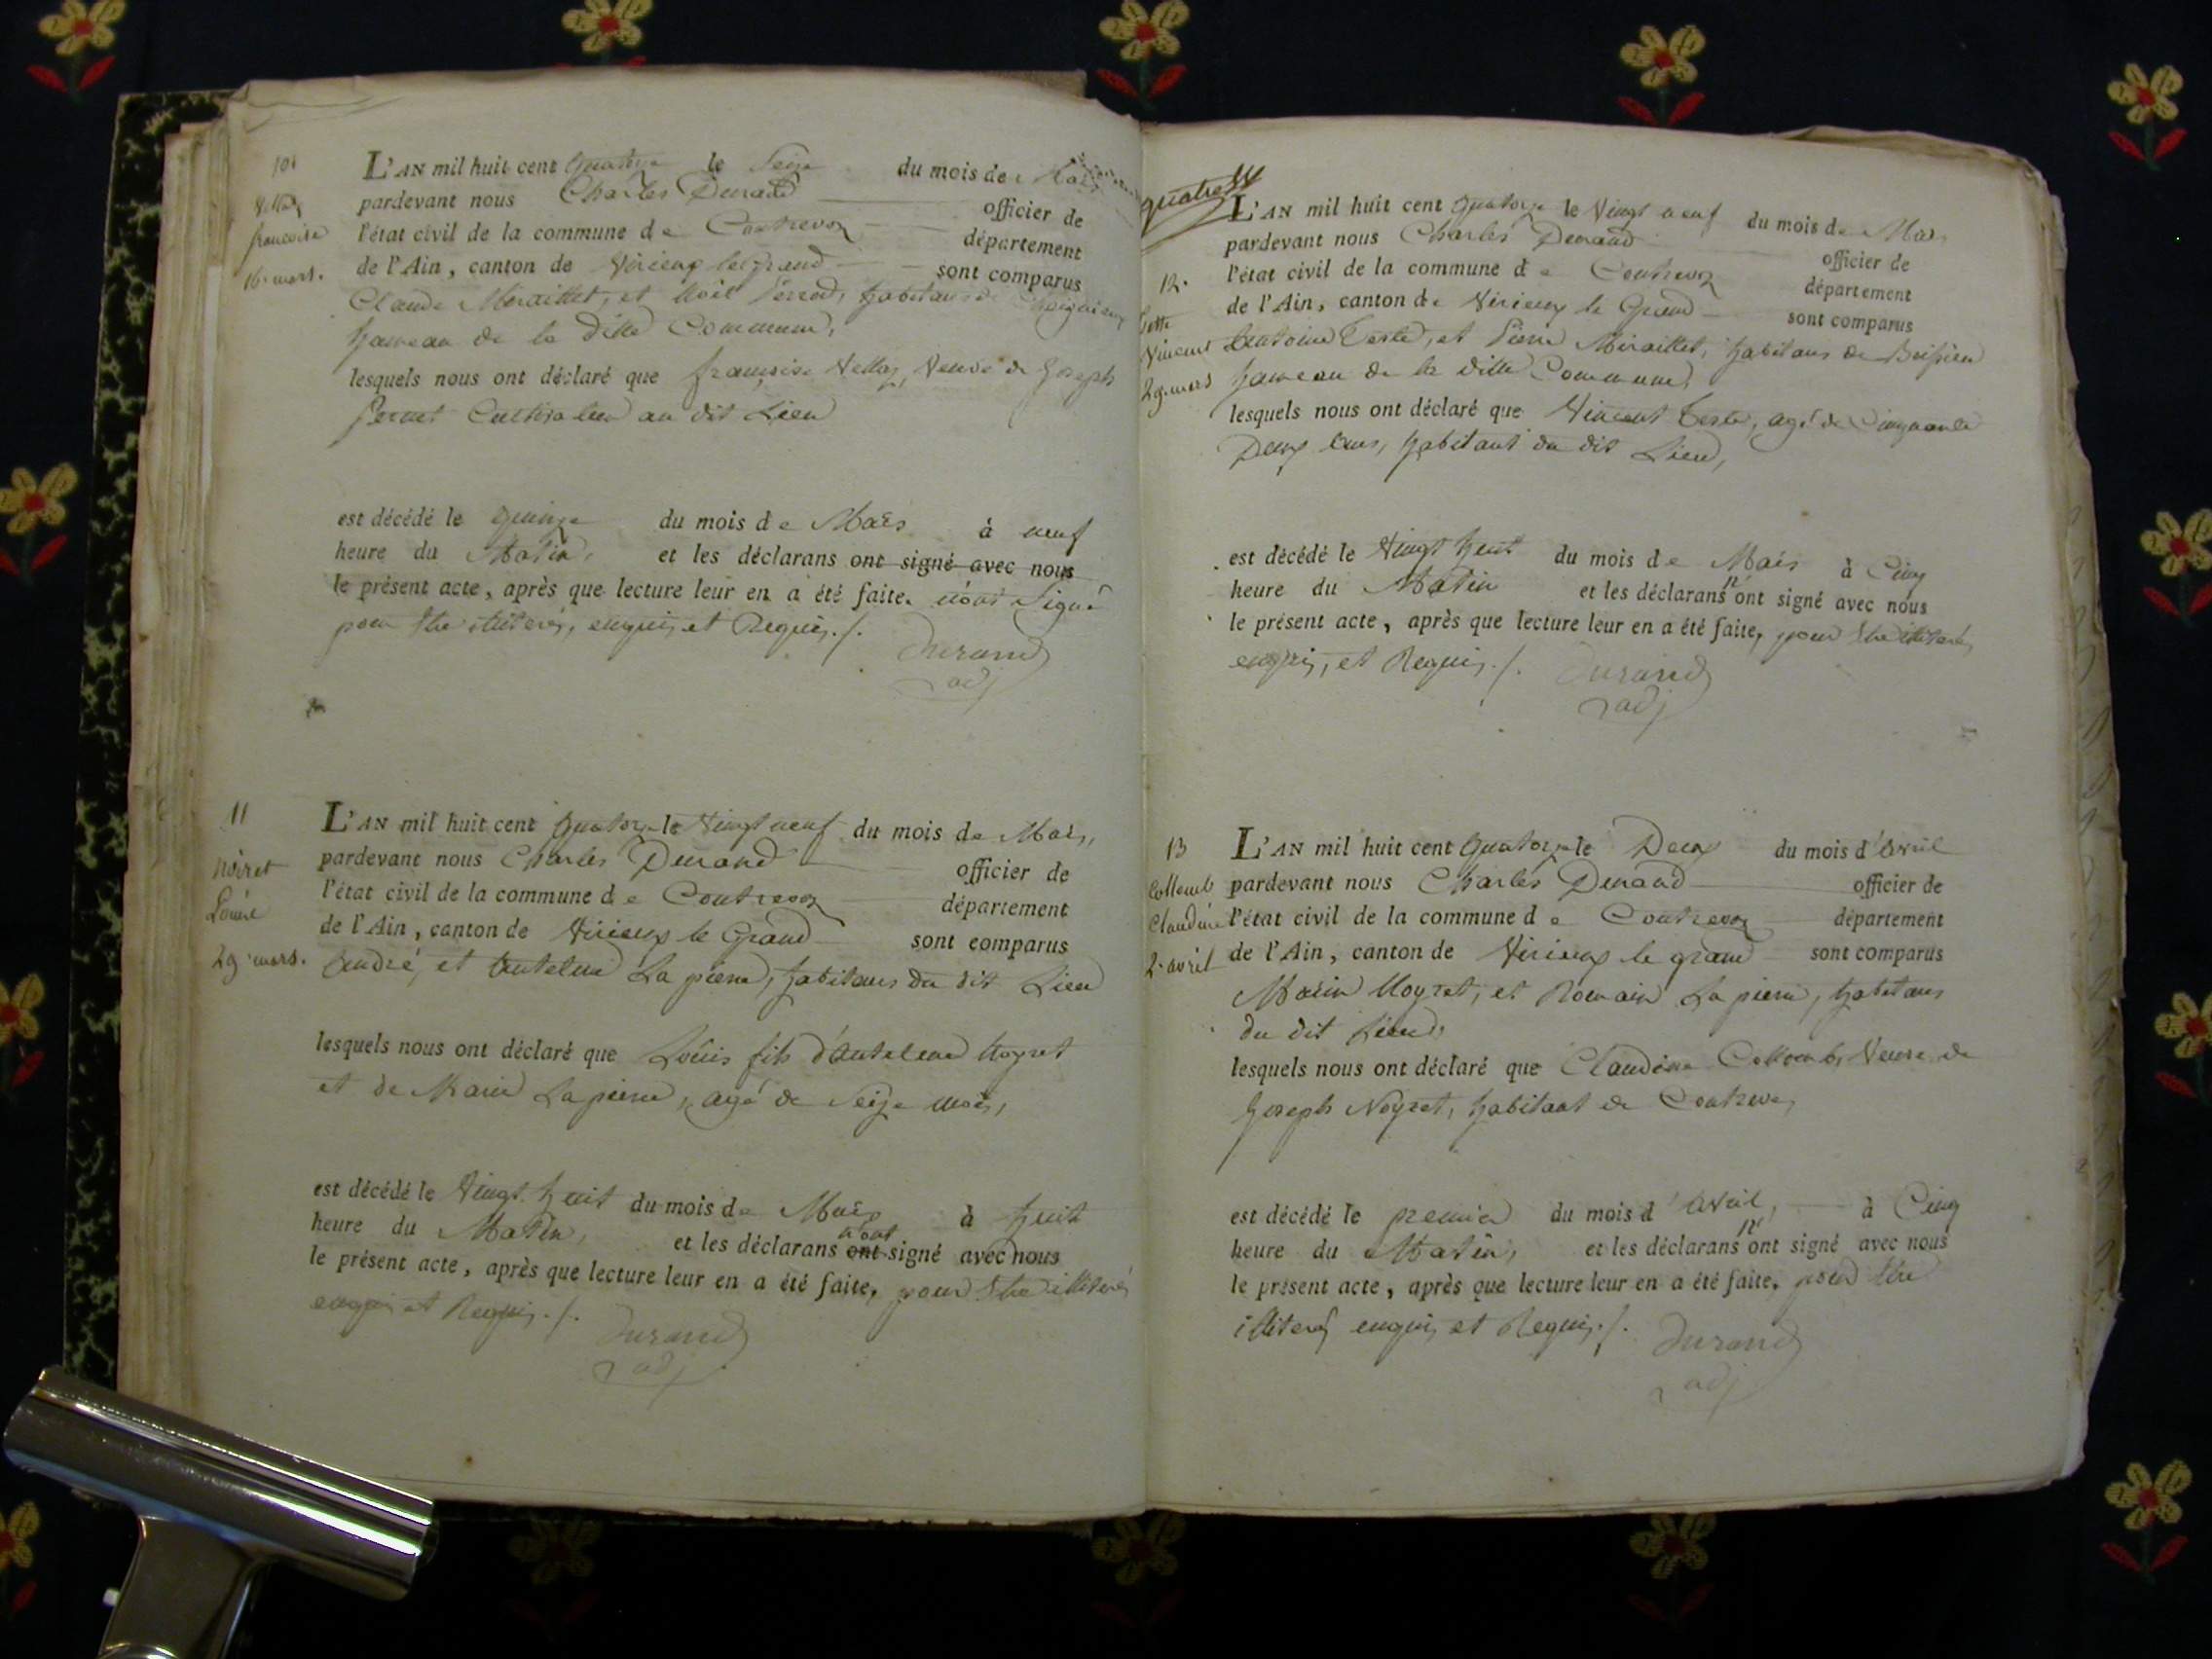 10
Vettaz
françoise
16. mars.
L'AN mil huit cent quatorze le Seize du mois de Mars
pardevant nous Charles Durand officier de
l'état civil de la commune de Contrevoz département
de l'Ain, canton de Virieux le grand sont comparus
Claude Miraillet, et Noël habitans de
hameau de la ditte Commune,
lesquels nous ont déclaré que françoise Vettaz, Veuve de Joseph
Cultivateur au dit Lieu
est décédé le quinze du mois de Mars à neuf
heure du Matin, et les déclarans ont signé avec nous
le présent acte, après que lecture leur en a été faite. n'ont Signé
pour Etre illiterés, enquis et Requis ./.
Durand
adj
11
noiret
Louis
29. mars.
L'AN mil huit cent quatorze le Vingt neuf du mois de Mars,
pardevant nous Charles Durand officier de
l'état civil de la commune de Contrevoz département
de l'Ain, canton de Virieux le Grand sont comparus
André, et Antelme La pierre, habitans du dit Lieu
lesquels nous ont déclaré que Loüis fils d'Antelme Noyret
et de Marie Lapierre, agé de Seize mois,
est décédé le Vingt huit du mois de Mars à huit
heure du Matin, et les déclarans ont n'ont signé avec nous
le présent acte, après que lecture leur en a été faite, pour Etre illiterés
enquis et Requis ./.
Durand
adj
quatre
12.
teste
Vincent
29. mars
L'AN mil huit cent quatorze le Vingt neuf du mois de Mars
pardevant nous Charles Durand officier de
l'état civil de la commune de Contrevoz département
de l'Ain, canton de Virieux le Grand sont comparus
Antoine Teste, et Pierre Miraillet, habitans de Boissieu
hameau de la ditte Commune,
lesquels nous ont déclaré que Vincent Teste, agé de Cinquante
Deux ans, habitant du dit Lieu,
est décédé le Vingt huit du mois de Mars à Cinq
heure du Matin et les déclarans n'ont signé avec nous
le présent acte, après que lecture leur en a été faite, pour Etre illiterés
enquis, et Requis ./.
Durand
adj
13
Collomb
Claudine
2. avril
L'AN mil huit cent quatorze le Deux du mois d'Avril
pardevant nous Charles Durand officier de
l'état civil de la commune de Contrevoz département
de l'Ain, canton de Virieux le grand sont comparus
Marin Noyret, et Romain La pierre, habitans
du dit Lieu,
lesquels nous ont déclaré que Claudine Collomb, Veuve de
Joseph Noyret, habitant de Contrevoz
est décédé le premier du mois d'Avril, à Cinq
heure du Matin, et les déclarans n'ont signé avec nous
le présent acte, après que lecture leur en a été faite, pour Etre
illiterés enquis et Requis ./.
Durand
adj